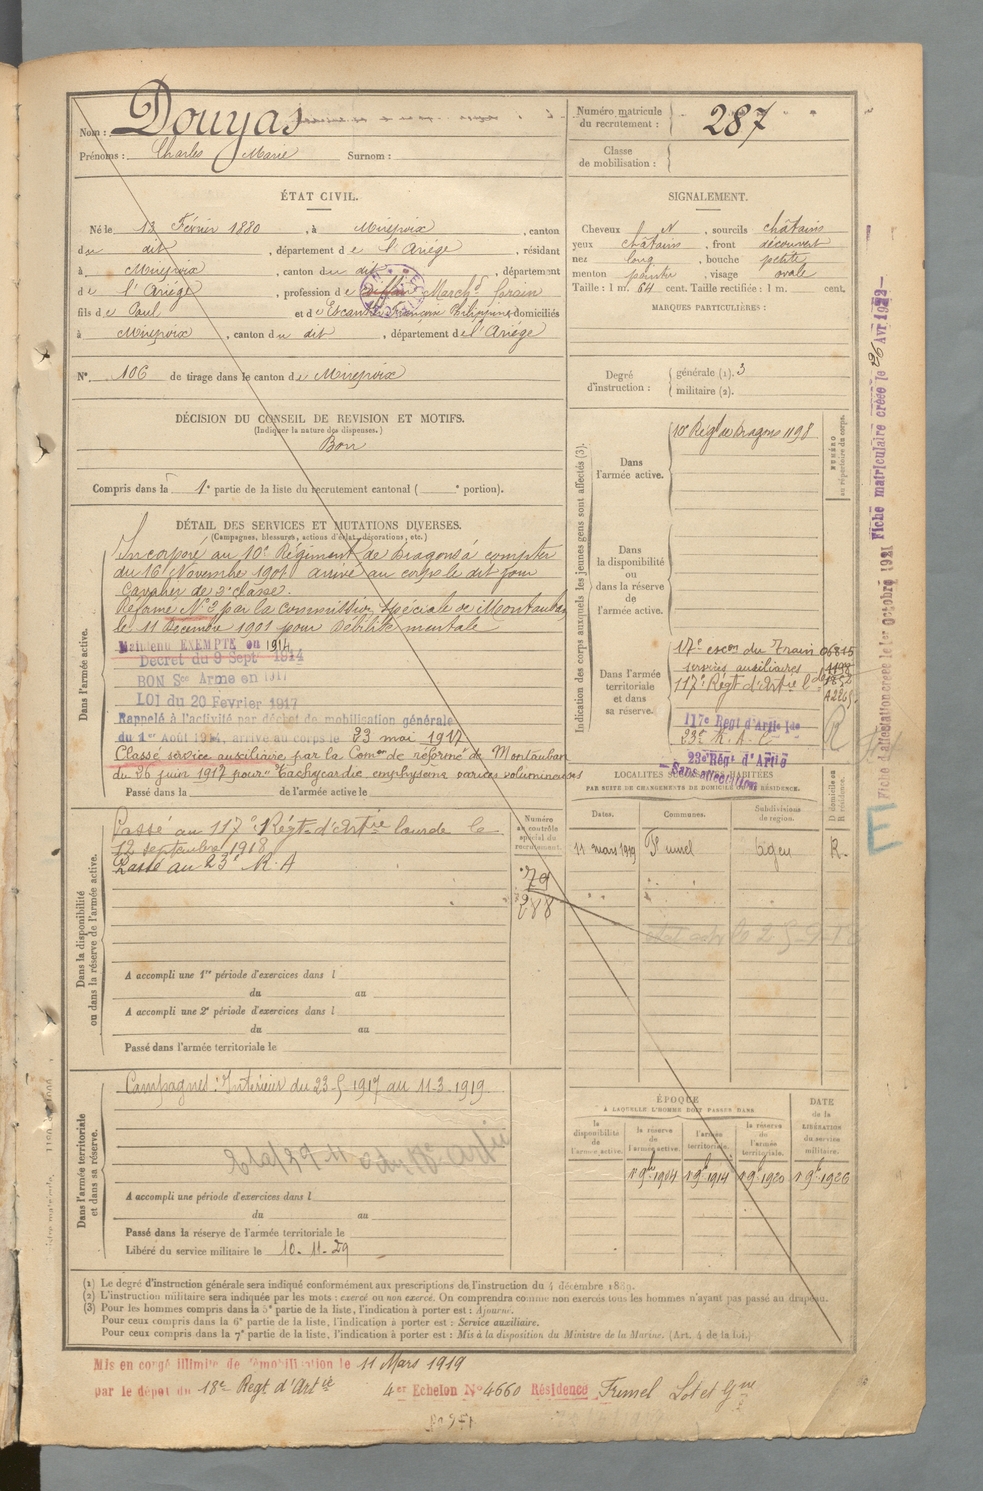 Nom : Douyas
Prénoms : Charles Marie Surnom :
Numéro matricule du recrutement : 287
Classe de mobilisation :
ÉTAT CIVIL.
Né le 13 Février 1880, à Mirepoix, canton
du dit, département de l'Ariège, résidant
à Mirepoix, canton du dit, département
de l'Ariège, profession de Marchd forain
fils de Paul et d'Escanié Françoise Philippine domiciliés
à Mirepoix, canton du dit, département de l'Ariège
N° 106 de tirage dans le canton de Mirepoix
DÉCISION DU CONSEIL DE REVISION ET MOTIFS.
(Indiquer la nature des dispenses.)
Bon
Compris dans la 1e partie de la liste du recrutement cantonal ( e portion).
SIGNALEMENT.
Cheveux N, sourcils châtains
yeux châtains, front découvert
nez long, bouche petite
menton pointu, visage ovale
Taille : 1 m. 64 cent. Taille rectifiée : 1 m. cent.
MARQUES PARTICULIÈRES :
Degré d'instruction : générale (1). 3
militaire (2).
DÉTAIL DES SERVICES ET MUTATIONS DIVERSES.
(Campagnes, blessures, actions d'éclat, décorations, etc.)
Dans l'armée active.
Incorporé au 10e Régiment de Dragons à compter
du 16 Novembre 1901 arrivé au corps le dit jour
Cavalier de 2e classe.
Réformé N°2 par la commission spéciale de Montauban
le 11 décembre 1901 pour Débilité mentale
Maintenu EXEMPTÉ en 1914
Décret du 9 Sept 1914
BON Sce Armé en 1917
LOI du 20 Février 1917
Rappelé à l'activité par décret de mobilisation générale
du 1er Août 1914, arrivé au corps le 23 mai 1917
Classé service auxiliaire par la Comon de réforme de Montauban
du 26 juin 1917 pour Tachycardie emphysème varices volumineuses
Passé dans la de l'armée active le
Dans la disponibilité ou dans la réserve de l'armée active.
Passé au 117e Régt d'Artie lourde le
12 septembre 1918
Passé au 23e R.A
A accompli une 1re période d'exercices dans l
du au
A accompli une 2e période d'exercices dans l
du au
Passé dans l'armée territoriale le
Numéro au contrôle spécial du recrutement.
79
288
Dans l'armée territoriale et dans sa réserve.
Campagnes : Intérieur du 23-5-1917 au 11-3-1919
A accompli une période d'exercices dans l
du au
Passé dans la réserve de l'armée territoriale le
Libéré du service militaire le 10-11-29
Indication des corps auxquels les jeunes gens sont affectés (3).
NUMÉRO au répertoire du corps.
Dans l'armée active.
10e Régt de Dragons 1198
Dans la disponibilité ou dans la réserve de l'armée active.
Dans l'armée territoriale et dans sa réserve.
17e escon du Train 06815
services auxiliaires
117e Régt d'Artie lde
117e Régt d'Artie lde
23e R.A.C
23e Régt d'Artie
Sans affectation
LOCALITÉS SUCCESSIVES HABITÉES
PAR SUITE DE CHANGEMENTS DE DOMICILE OU DE RÉSIDENCE.
Dates. Communes. Subdivisions de région. D domicile ou R résidence.
11 mars 1919 Fumel Agen R.
ÉPOQUE
À LAQUELLE L'HOMME DOIT PASSER DANS
la disponibilité de l'armée active.
la réserve de l'armée active.
l'armée territoriale.
la réserve de l'armée territoriale.
DATE de la LIBÉRATION du service militaire.
1r 9bre 1904 1r 9bre 1914 1r 9bre 1920 1r 9bre 1926
(1) Le degré d'instruction générale sera indiqué conformément aux prescriptions de l'instruction du 4 décembre 1889.
(2) L'instruction militaire sera indiquée par les mots : exercé ou non exercé. On comprendra comme non exercés tous les hommes n'ayant pas passé au drapeau.
(3) Pour les hommes compris dans la 5e partie de la liste, l'indication à porter est : Ajourné.
Pour ceux compris dans la 6e partie de la liste, l'indication à porter est : Service auxiliaire.
Pour ceux compris dans la 7e partie de la liste, l'indication à porter est : Mis à la disposition du Ministre de la Marine. (Art. 4 de la loi.)
Mis en congé illimité de démobilisation le 11 Mars 1919
par le dépôt du 18e Regt d'Artie 4er Echelon N° 4660 Résidence Fumel Lot et Gne
Fiche d'attestation créée le 1er Octobre 1921 Fiche matriculaire créée le 26 Avr 1923
E